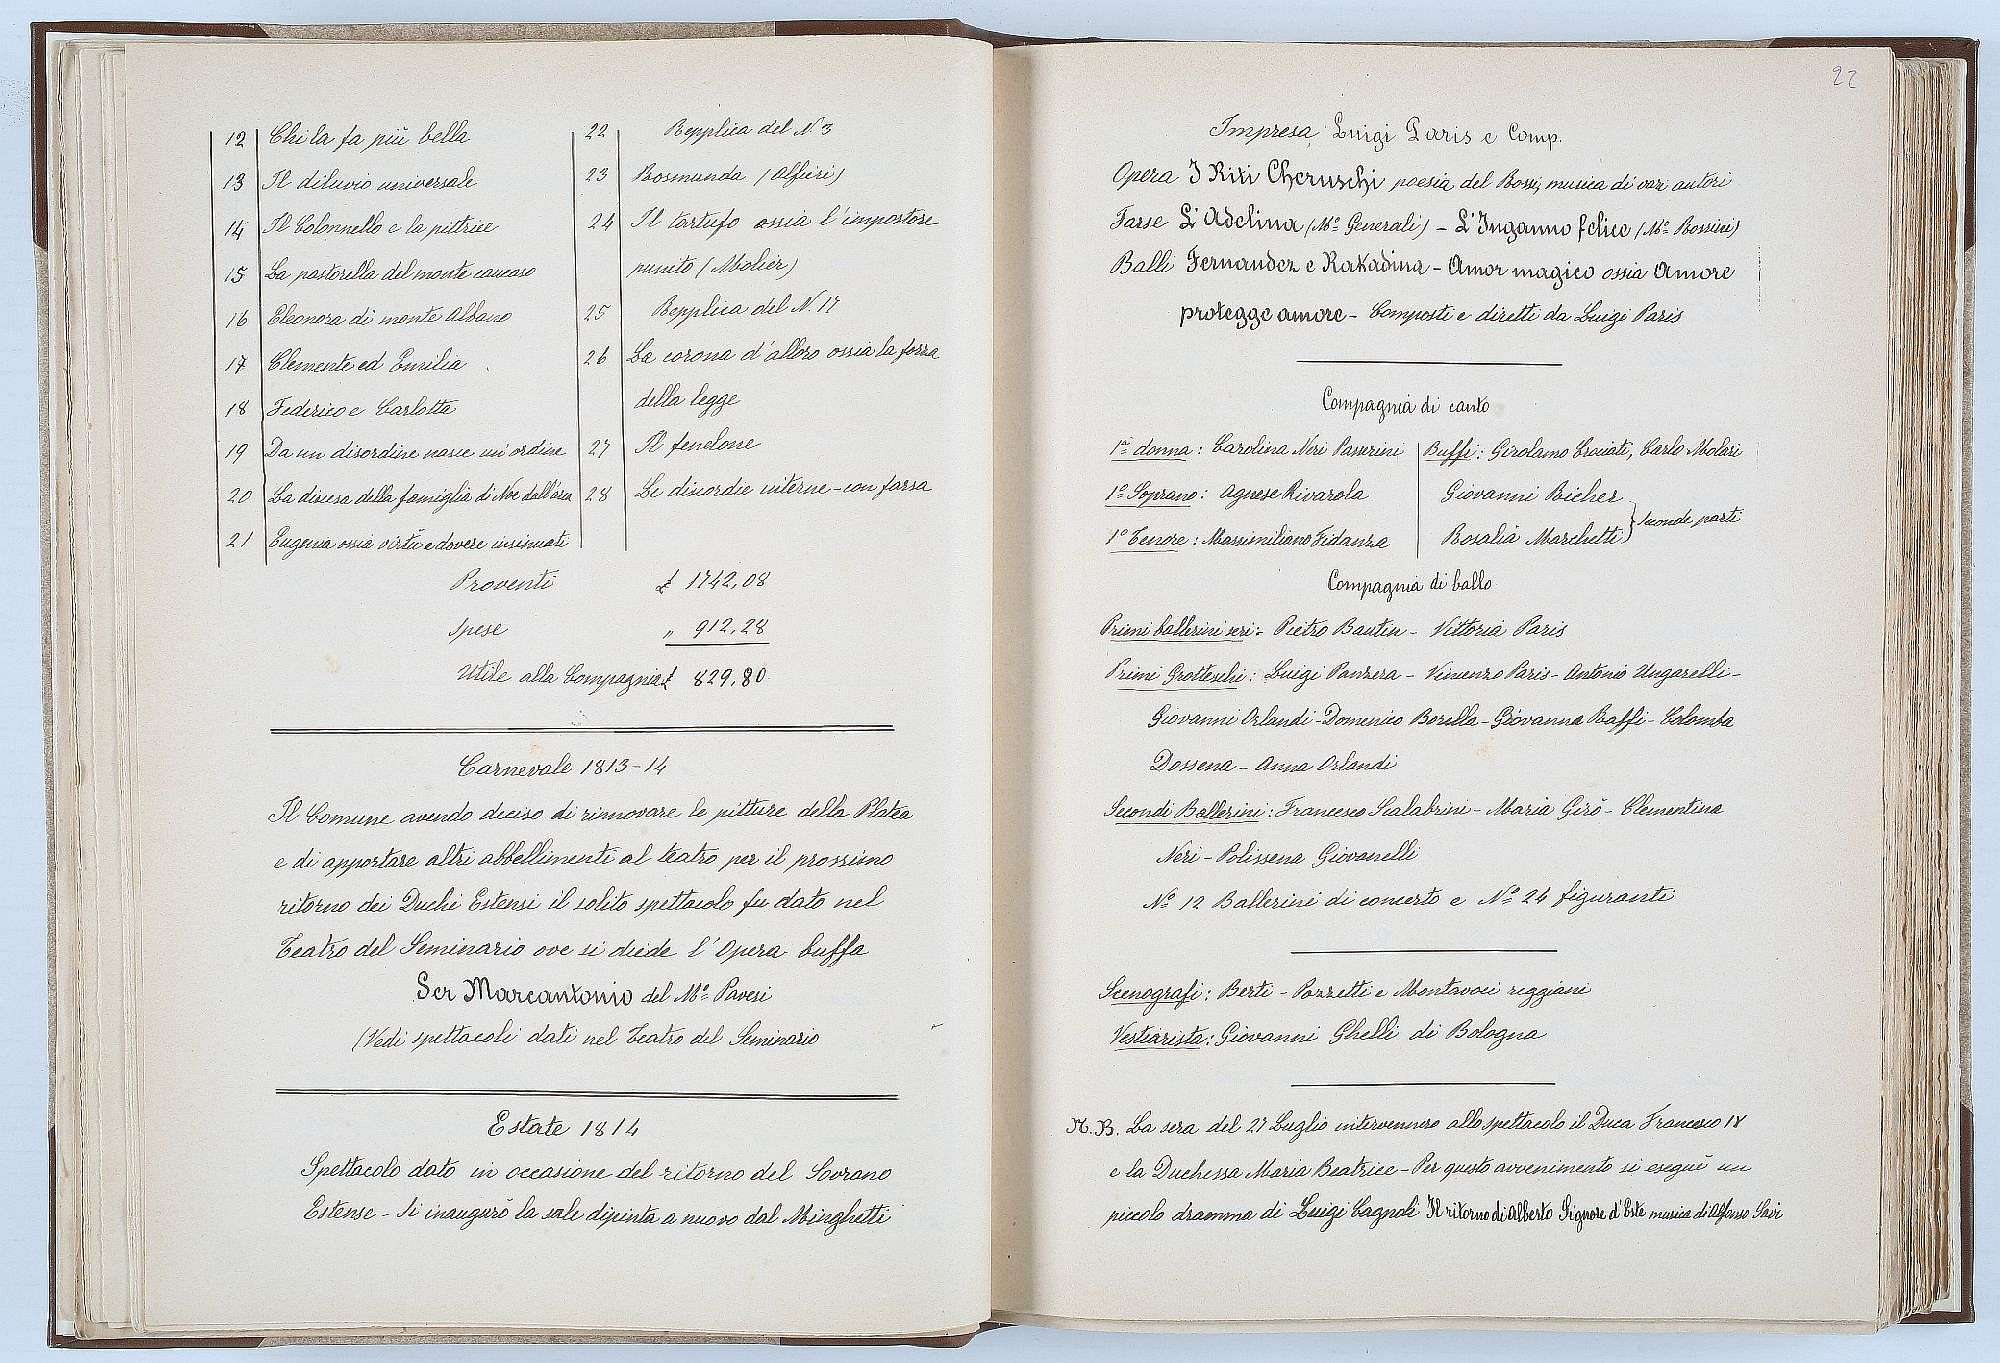 12 Chi la fa più bella
13 Il diluvio universale
14 Il Colonnello e la pittrice
15 La pastorella del monte caucaso
16 Eleonora di monte Albano
17 Clemente ed Emilia
18 Federico e Carlotta
19 Da un disordine nasce un ordine
20 La discesa della famiglia di Noe dall'arca
21 Eugenia ossia virtù e dovere insinuati
22 Repplica del N 3
23 Rosmunda (Alfieri)
24 Il tartufo ossia l'impostore
punito (Molier)
25 Repplica del N. 17
26 La corona d'alloro ossia la forza
della legge
27 Il fenelone
28 Le discordie interne - con farsa
Proventi £ 1742,08
Spese „ 912,28
Utile alla Compagnia £ 829,80
Carnevale 1813-14
Il Comune avendo deciso di rinnovare le pitture della Platea
e di apportare altri abbellimenti al teatro per il prossimo
ritorno dei Duchi Estensi il solito spettacolo fu dato nel
Teatro del Seminario ove si diede l'Opera buffa
Ser Marcantonio del Mº Pavesi
(Vedi spettacoli dati nel Teatro del Seminario
Estate 1814
Spettacolo dato in occasione del ritorno del Sovrano
Estense - Si inaugurò la sala dipinta a nuovo dal Minghetti
22
Impresa, Luigi Paris e Comp.
Opera I Riti Cheruschi poesia del Rossi, musica di vari autori
Farse L'Adelina (Mº Generali) - L'Inganno felice (Mº Rossini)
Balli Fernandez e Rakadina - Amor magico ossia Amore
protegge amore - Composti e diretti da Luigi Paris
Compagnia di canto
1ª donna: Carolina Neri Passerini
1º Soprano: Agnese Rivarola
1º Tenore: Massimiliano Fidanza
Buffi: Girolamo Cruciati, Carlo Molari
Giovanni Bicher
Rosalia Marchetti } seconde parti
Compagnia di ballo
Primi ballerini seri: Pietro Bautin - Vittoria Paris
Primi Grotteschi: Luigi Panzera - Vincenzo Paris - Antonio Ungarelli -
Giovanni Orlandi - Domenico Borella - Giovanna Baffi - Colomba
Dossena - Anna Orlandi
Secondi Ballerini: Francesco Scalabrini - Maria Girò - Clementina
Neri - Polissena Giovanelli
Nº 12 Ballerini di concerto e Nº 24 figuranti
Scenografi: Berti - Pozzetti e Montavoci reggiani
Vestiarista: Giovanni Ghelli di Bologna
N. B. La sera del 27 Luglio intervennero allo spettacolo il Duca Francesco IV
e la Duchessa Maria Beatrice - Per questo avvenimento si eseguì un
piccolo dramma di Luigi Cagnoli Il ritorno di Alberto Signore d'Este musica di Alfonso Savi